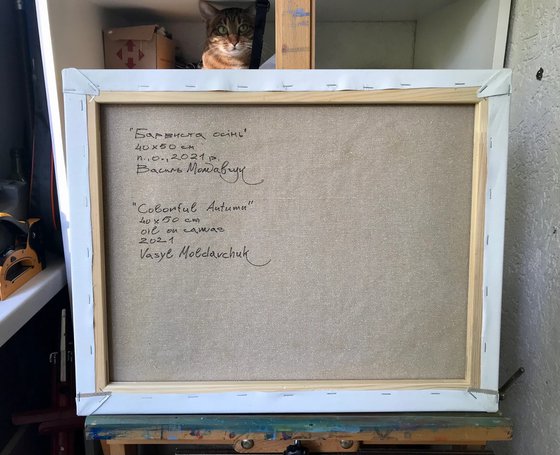 "Барвиста осінь"
40x50 см
п., о., 2021 р.
Василь Молдавчук
"Colorful Autumn"
40x50 cm
oil on canvas
2021
Vasyl Moldavchuk